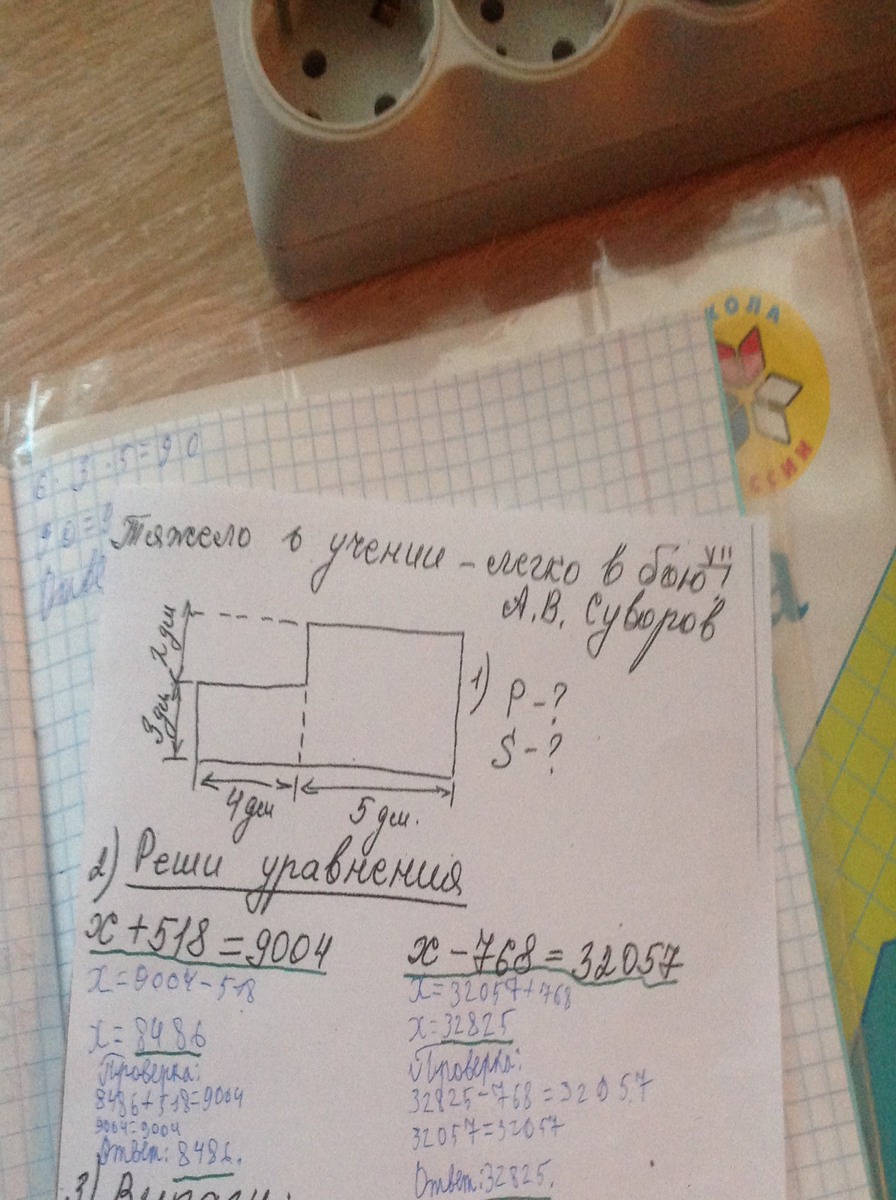 КОЛА
ССИИ
6 · 3 · 5 = 90
Отве
Тяжело в учении – легко в бою"
А.В. Суворов
2 дм
3 дм
4 дм
5 дм.
1) P – ?
S – ?
2) Реши уравнения
x + 518 = 9004
x = 9004 – 518
x = 8486
Проверка:
8486 + 518 = 9004
9004 = 9004
Ответ: 8486.
x – 768 = 32057
x = 32057 + 768
x = 32825
Проверка:
32825 – 768 = 32057
32057 = 32057
Ответ: 32825.
3)